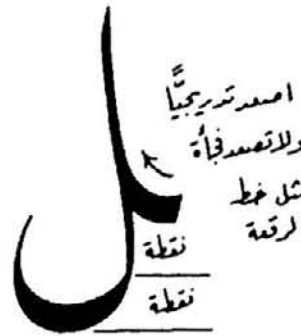 اصعد تدريجيًّا
ولا تصعد فجأة
مثل خط
لرقعة
نقطة
نقطة